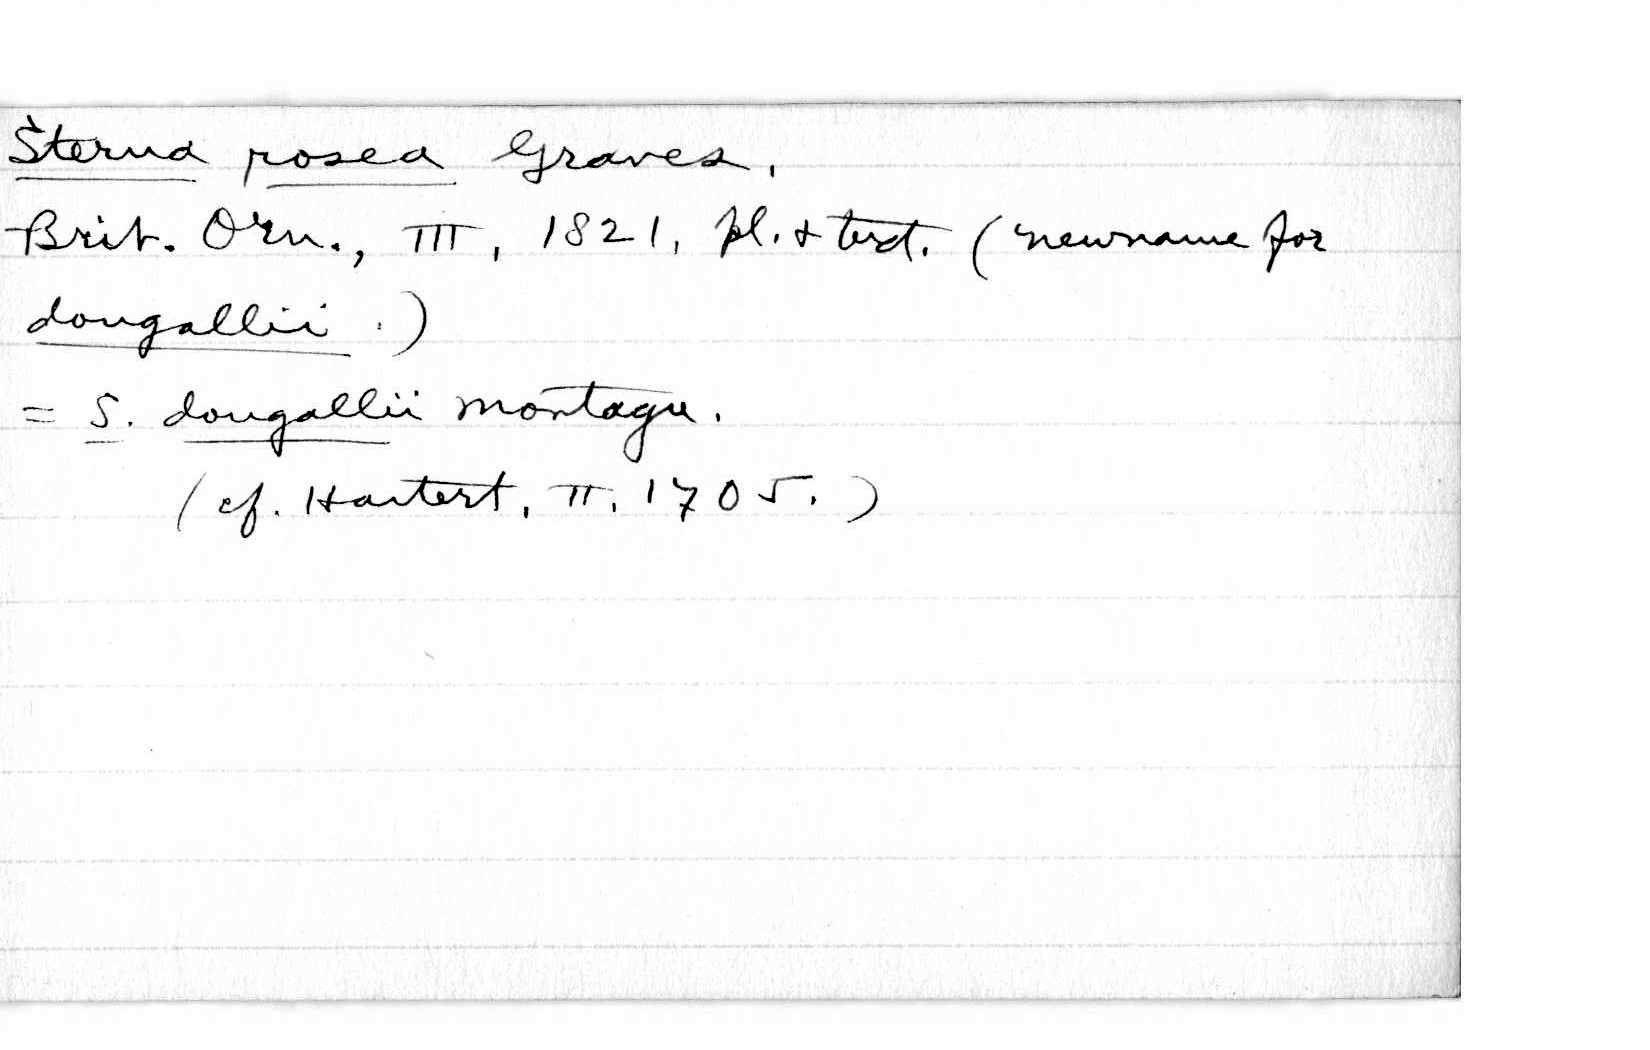 Sterna rosea Graves.
Brit. Orn., III, 1821, pl. & text. (new name for
dougallii.)
= S. dougallii Montagu.
(cf. Hartert, II, 1705.)